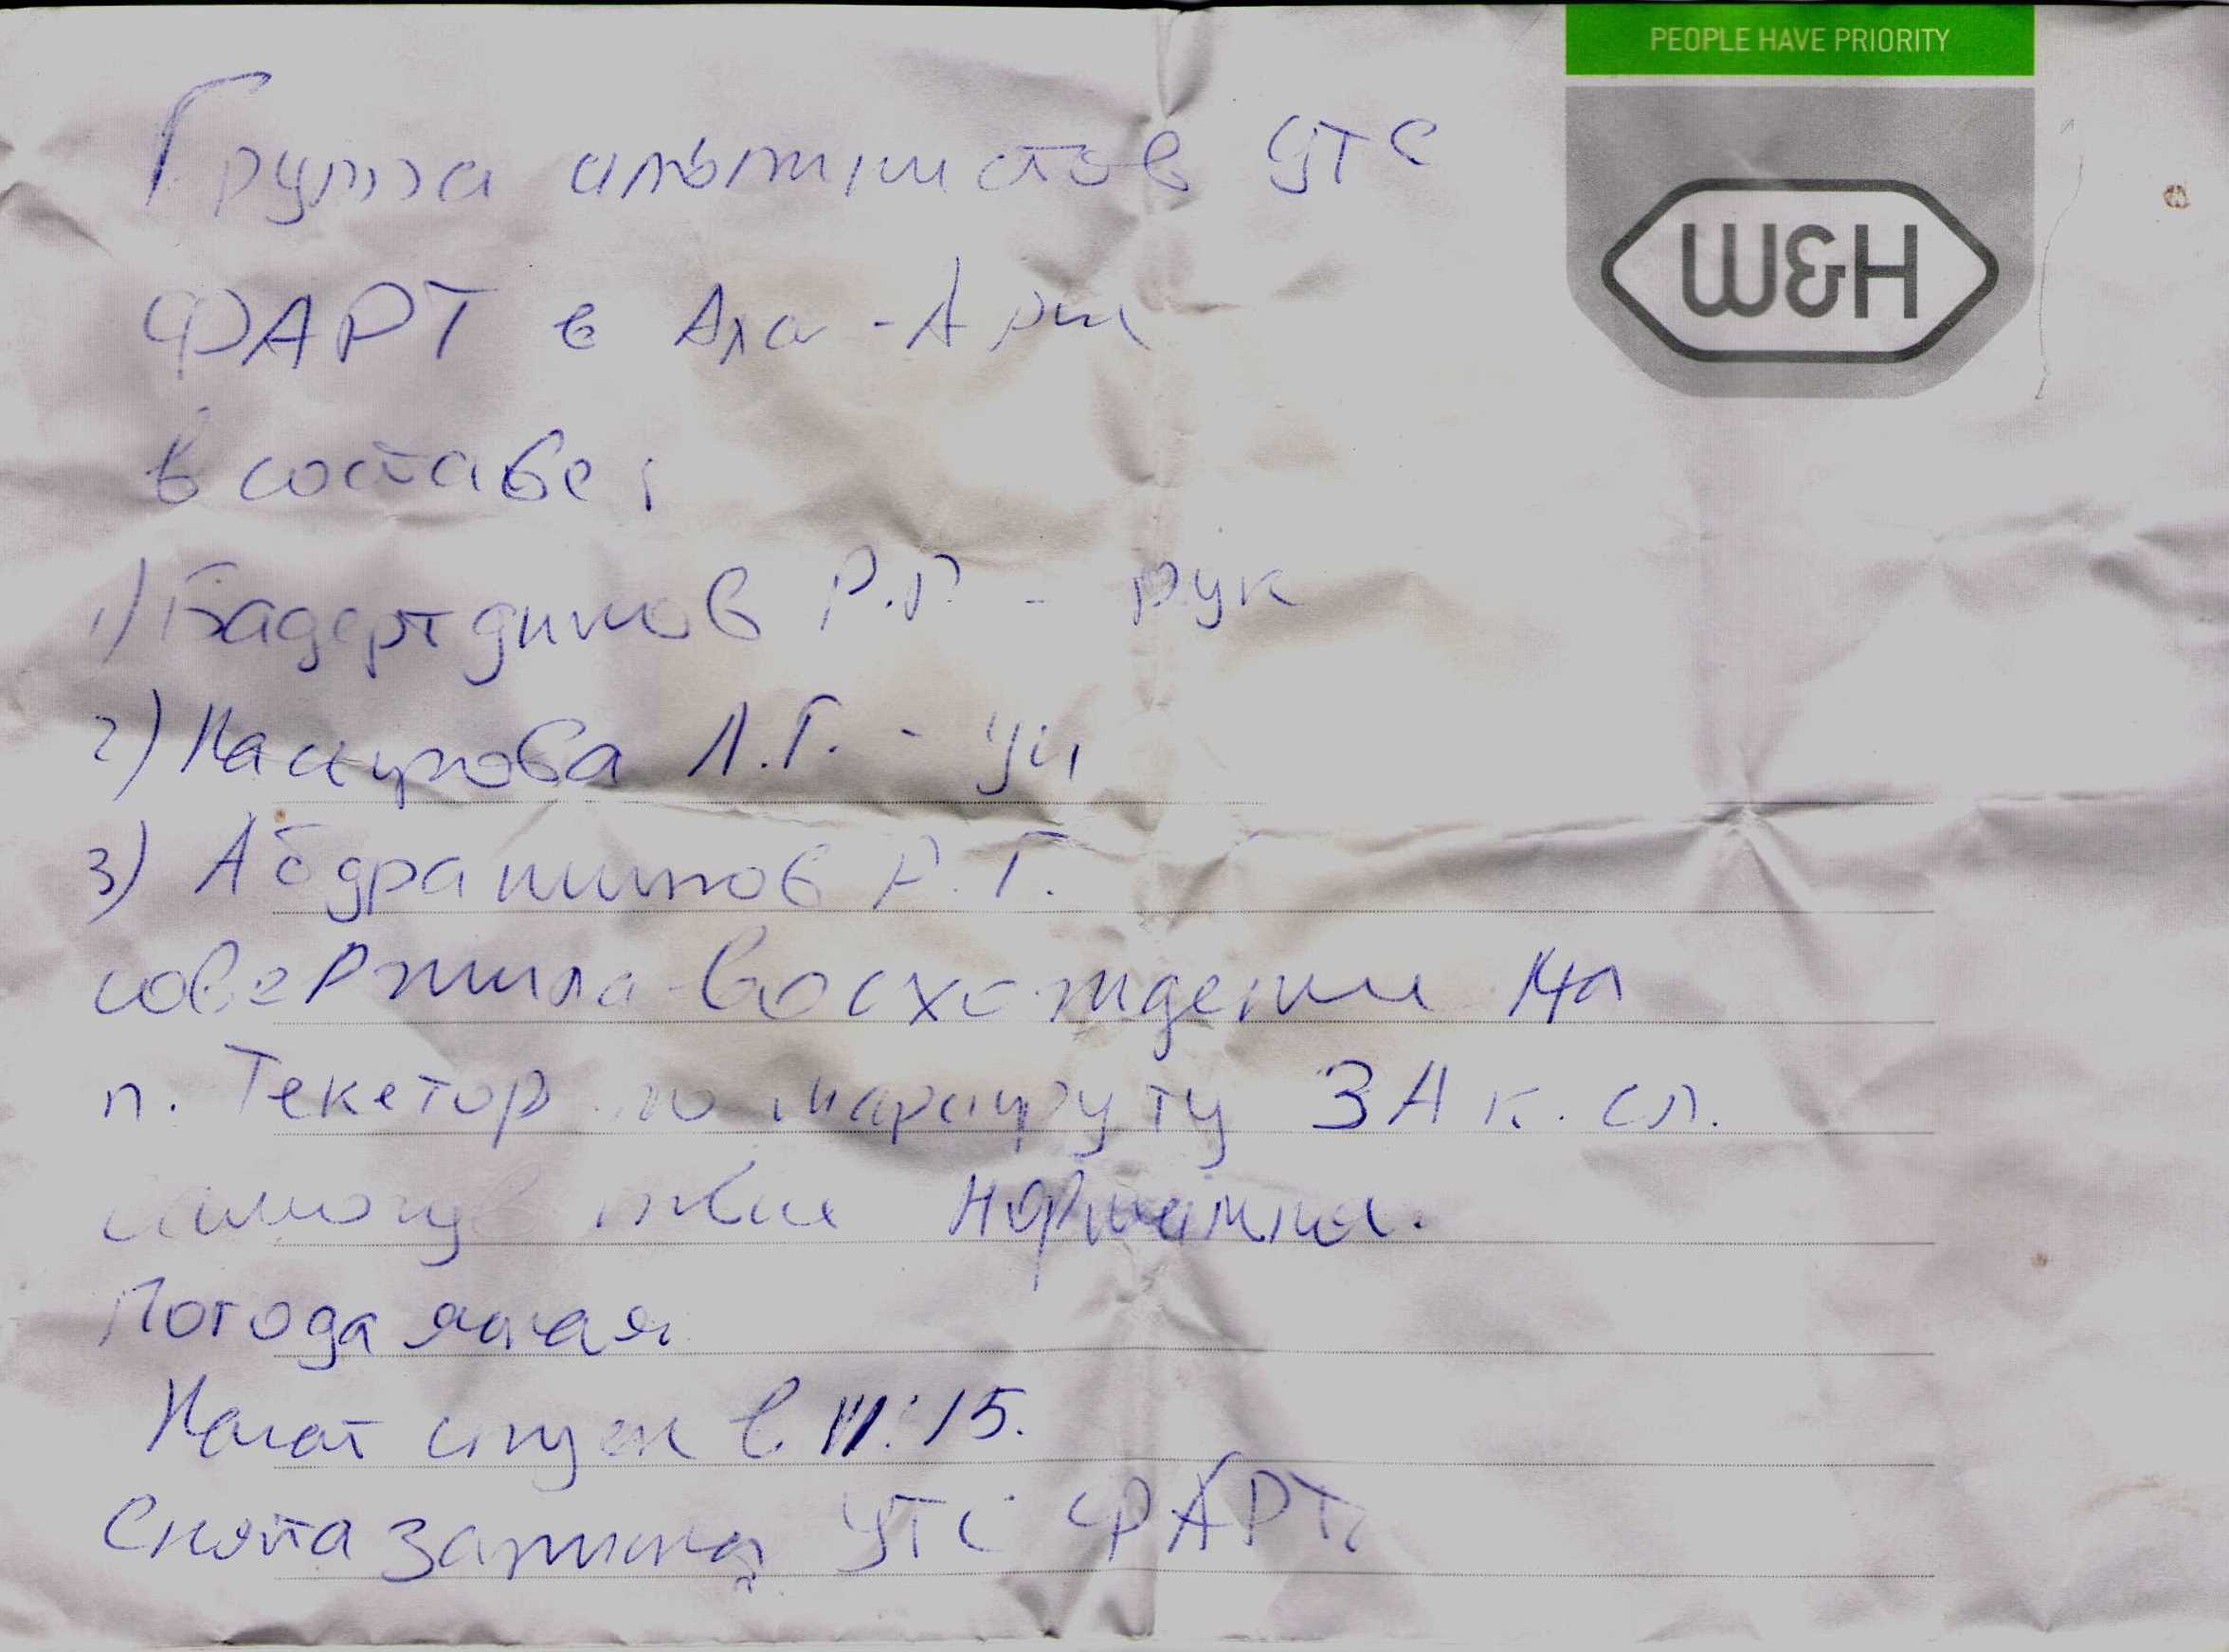 PEOPLE HAVE PRIORITY
W&H
Группа альпинистов УТС
ФАРТ в Ала-Арчи
в составе:
1) Бадертдинов Р.Р - рук
2) Р.Г. - уч
3) Абдрашитов Р.Г.
совершила восхождение на
п. Текетор по маршруту 3А к. сл.
самочувствие нормально.
Погода ясная
Начат спуск в 11:15.
Снята записка УТС ФАРТ